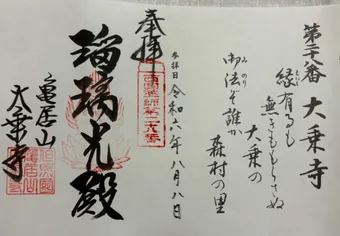 第二十八番 大乗寺
縁有るも
無きももらさぬ
大乗の
御法ぞ誰か
みのり
森村の里
奉拝
参拝日 令和六年八月八日
瑠璃光殿
亀居山
大乗寺